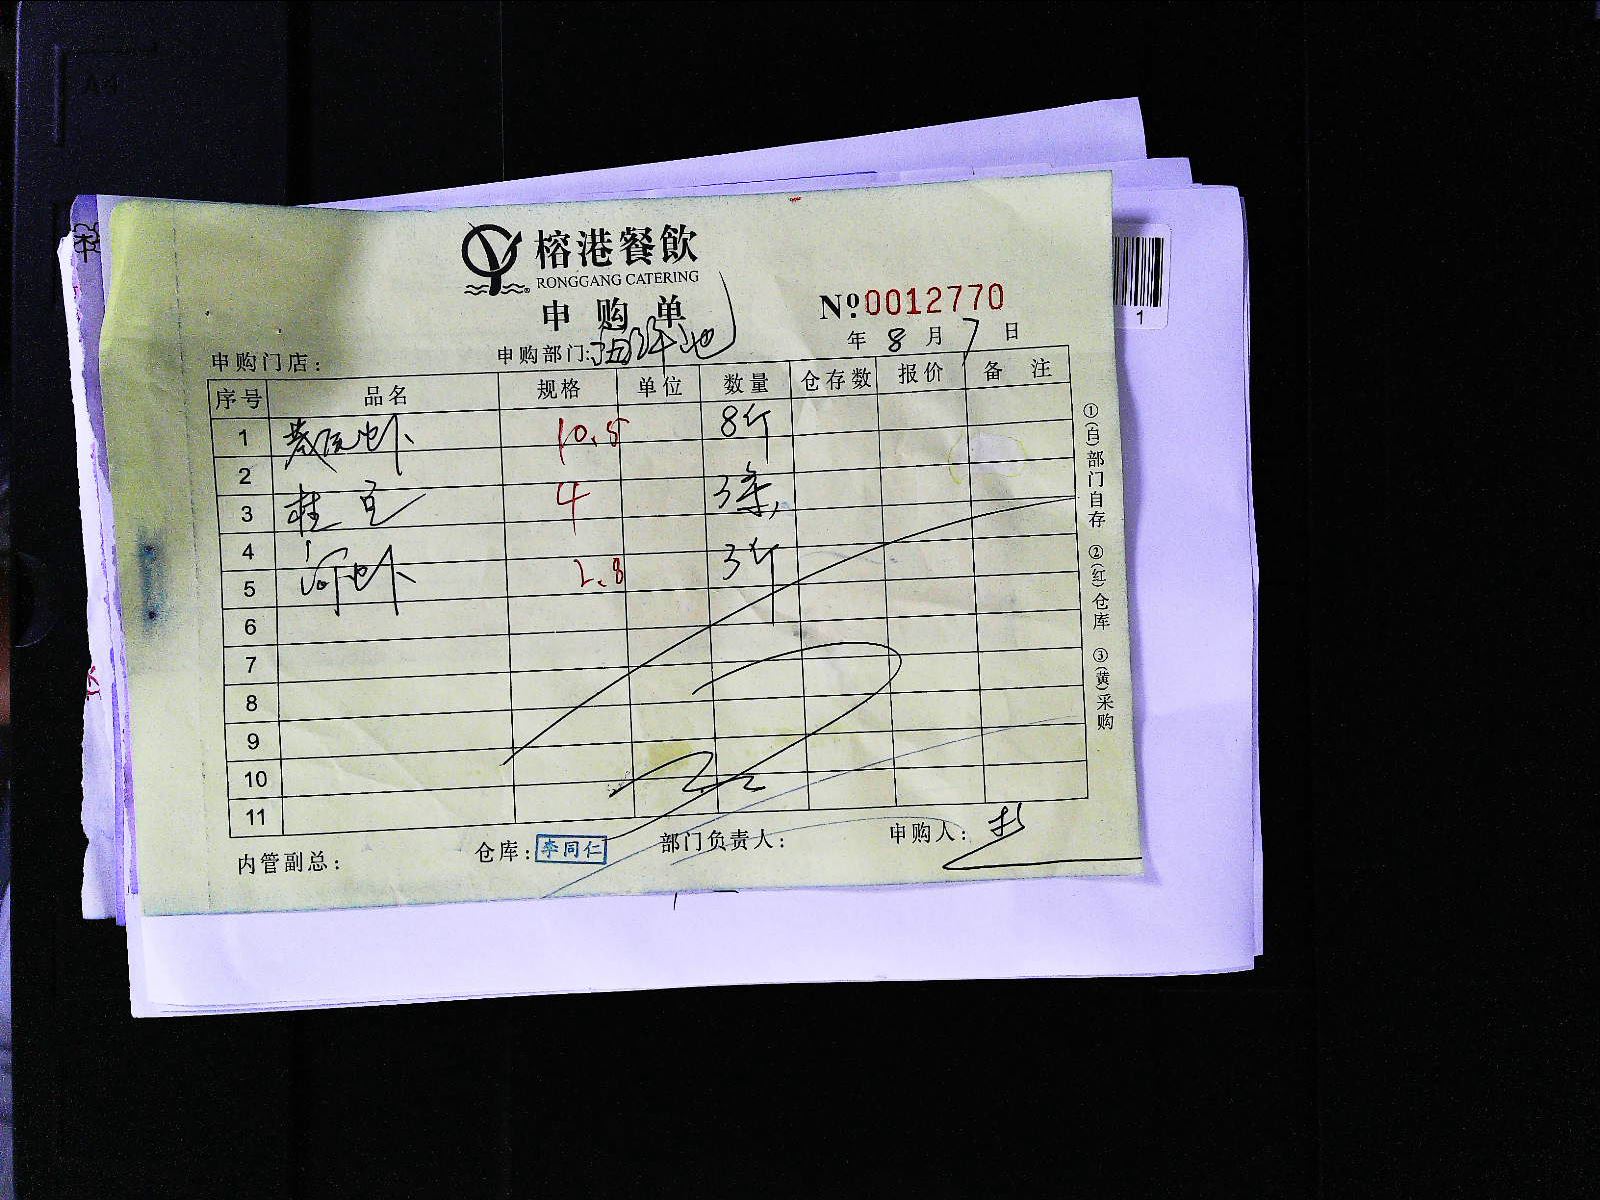 榕港餐飲
RONGGANG CATERING
申购单
№:0012770
申购门店：
申购部门：海鲜池
年 8 月 7 日
序号 品名 规格 单位 数量 仓存数 报价 备注
1 10.5 8斤
2
3 桂 4 3条
4
5 河虾 2.8 3斤
6
7
8
9
10
11
内管副总： 仓库：李同仁 部门负责人： 申购人：
①(白)部门自存 ②(红)仓库 ③(黄)采购
A4
1